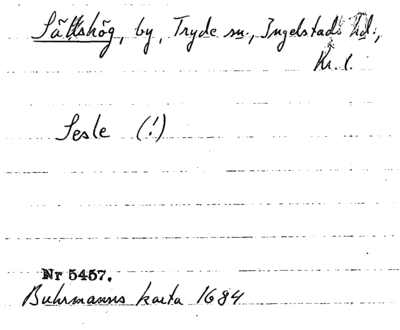 Sättshög, by, Tryde sn., Ingelstads hd.,
Kr. l.
Sesle (!)
Nr 5457.
Buhrmanns karta 1684